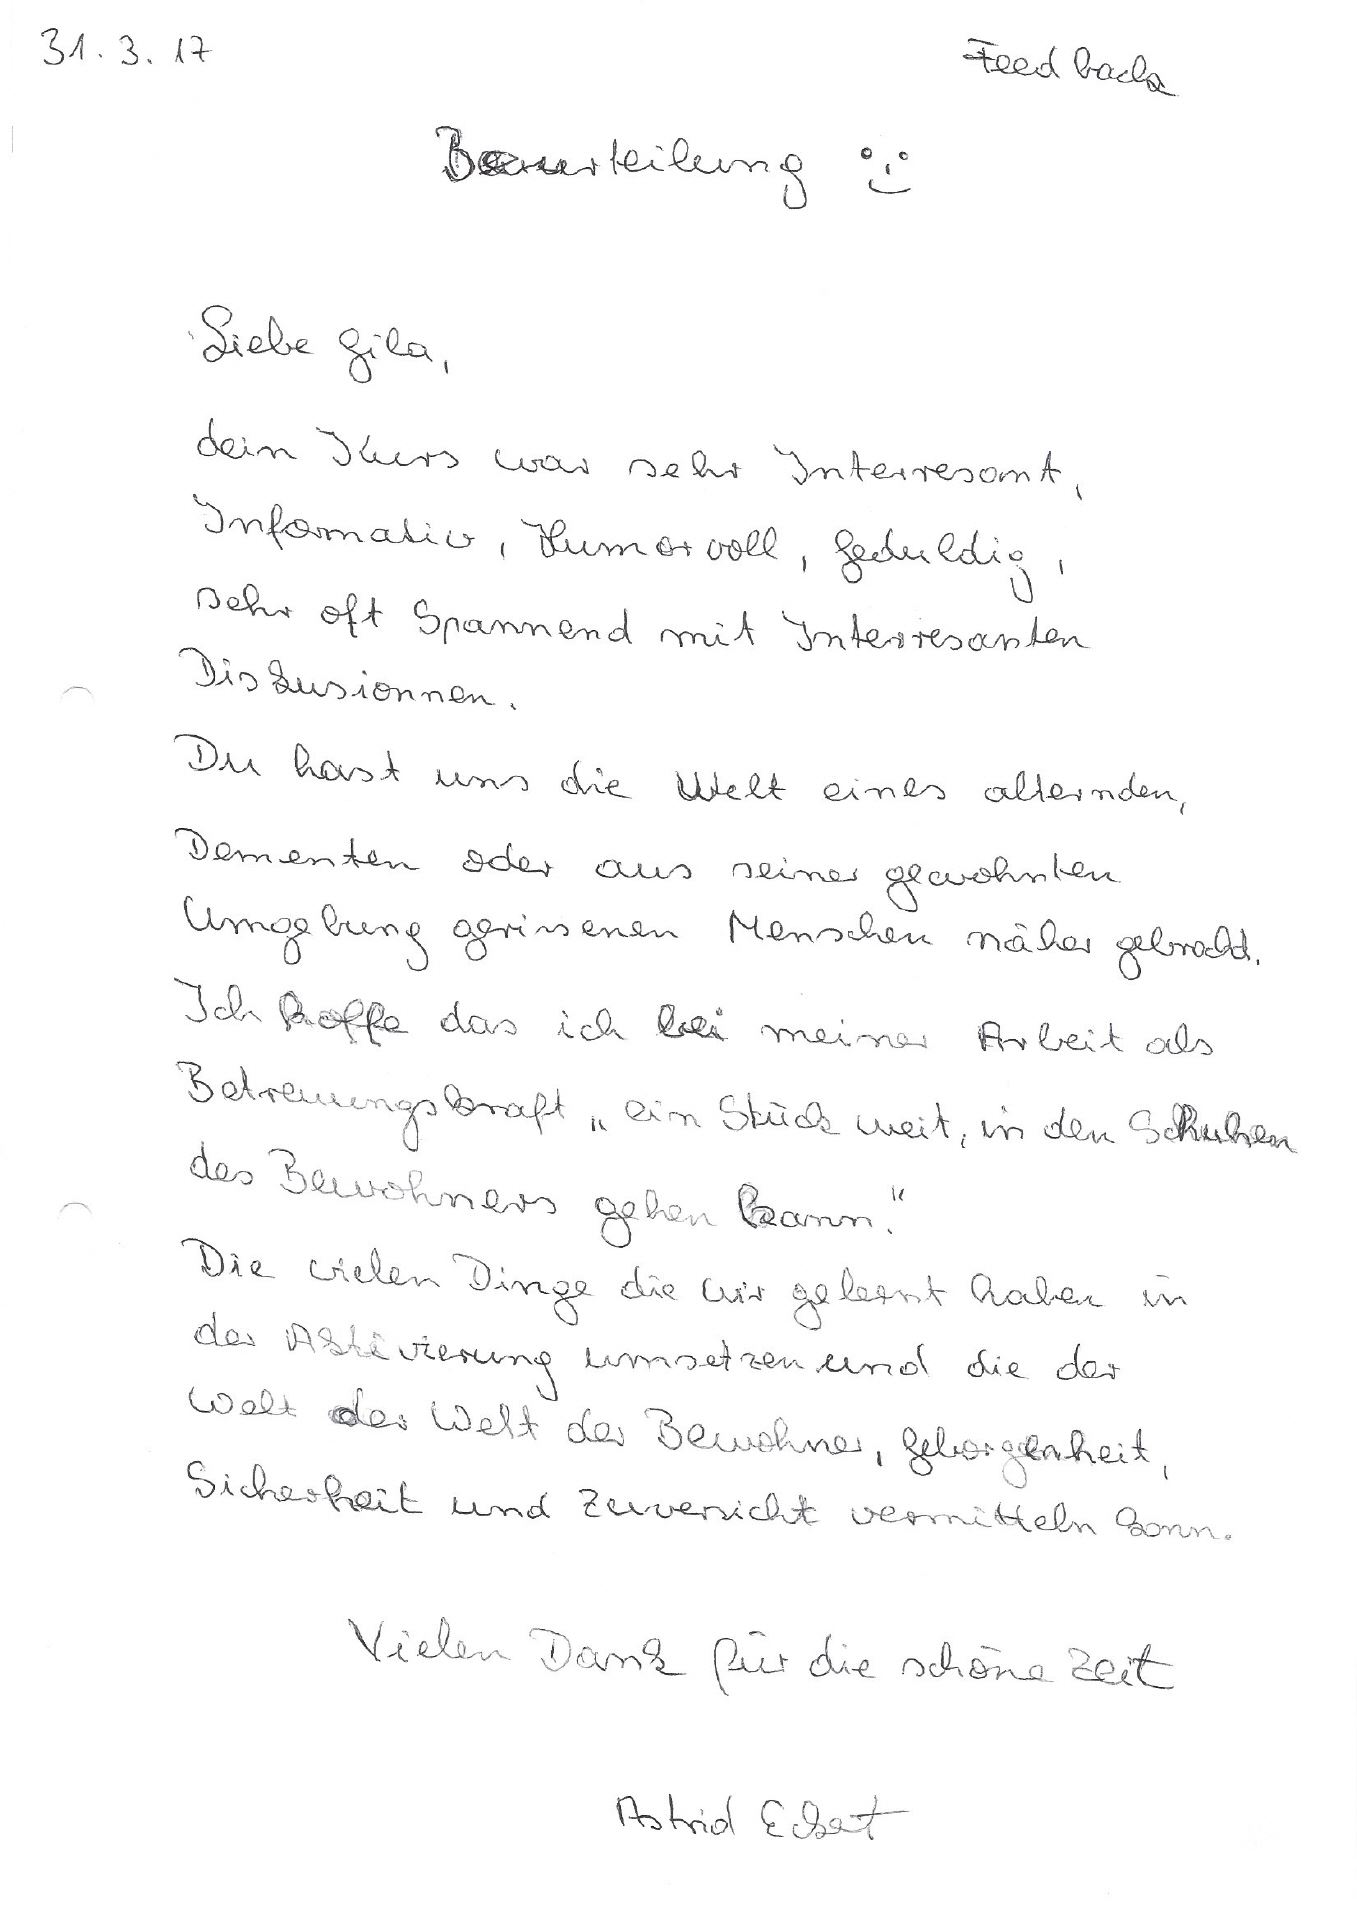 31.3.17
Feedback
Beurteilung
Liebe Gila,
dein Kurs war sehr Interresant,
Informativ, Humorvoll, Geduldig,
sehr oft Spannend mit Interresanten
Diskusionnen.
Du hast uns die Welt eines alternden,
Dementen oder aus seiner gewohnten
Umgebung gerissenen Menschen näher gebracht.
Ich hoffe das ich bei meiner Arbeit als
Betreuungskraft „ein Stück weit, in den Schuhen
des Bewohners gehen kann."
Die vielen Dinge die wir gelernt haben in
der Aktivierung umsetzen und die der
Welt der Welt der Bewohner, Geborgenheit,
Sicherheit und Zuversicht vermitteln kann.
Vielen Dank für die schöne Zeit
Astrid